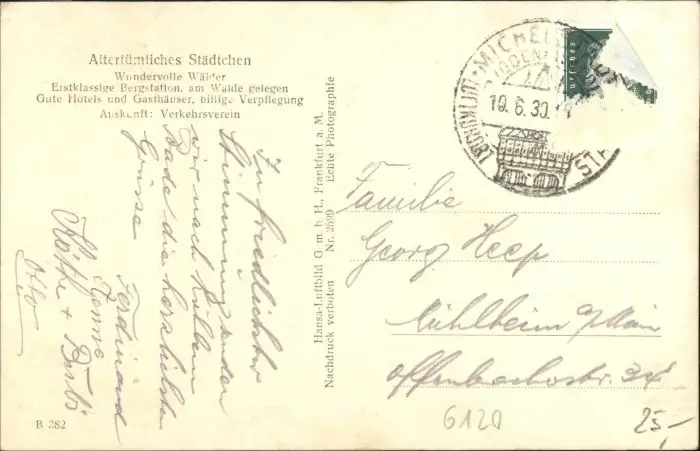 Altertümliches Städtchen
Wundervolle Wälder
Erstklassige Bergstation, am Walde gelegen
Gute Hotels und Gasthäuser, billige Verpflegung
Auskunft: Verkehrsverein
In friedlichster
Stimmung senden
wir nach
Bade die herzlichsten
Grüsse
Ferdinand
Käthe + Bubi
Otto
B 282
Hansa-Luftbild G. m. b. H., Frankfurt a. M.
Nachdruck verboten Nr. 2599 Echte Photographie
LUFTKURORT MICHELSTADT
10.6.30.
Familie
Georg Heep
Mühlheim a/Main
Offenbacherstr. 34
6120
25,-